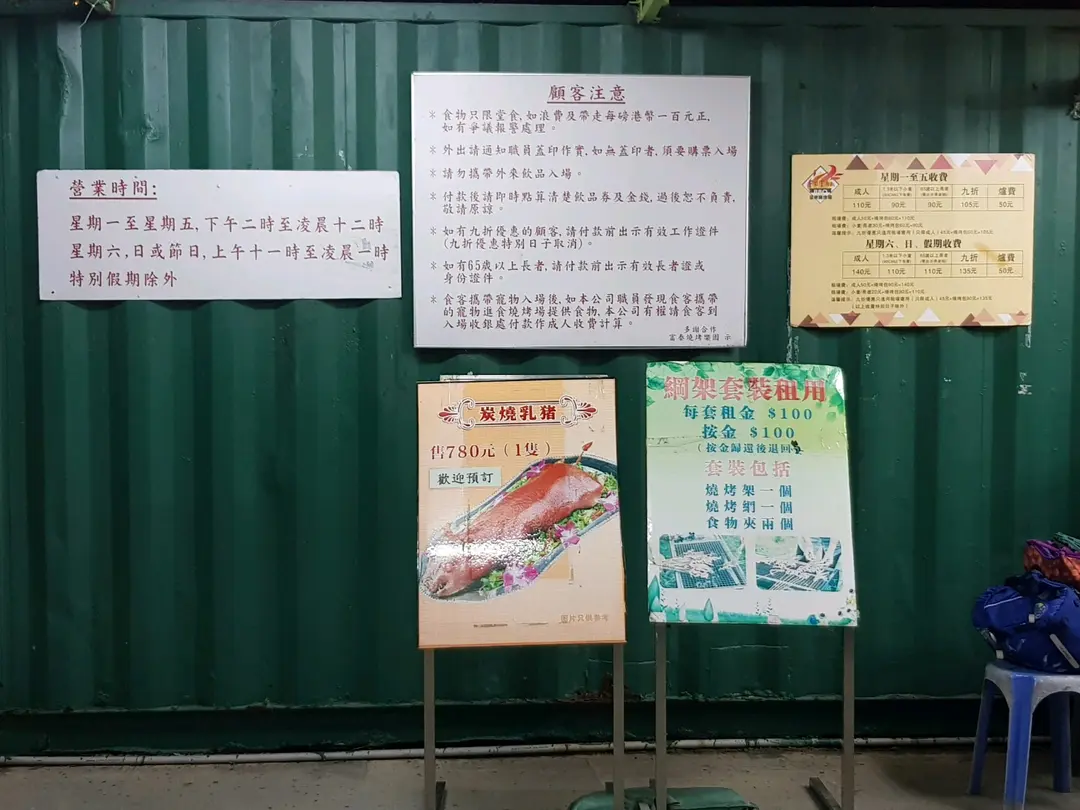 營業時間:
星期一至星期五,下午二時至凌晨十二時
星期六,日或節日,上午十一時至凌晨一時
特別假期除外
顧客注意
* 食物只限堂食,如浪費及帶走每磅港幣一百元正,
如有爭議報警處理。
* 外出請通知職員蓋印作實,如無蓋印者,須要購票入場
* 請勿攜帶外來飲品入場。
* 付款後請即時點算清楚飲品券及金錢,過後恕不負責,
敬請原諒。
* 如有九折優惠的顧客,請付款前出示有效工作證件
(九折優惠特別日子取消)。
* 如有65歲以上長者,請付款前出示有效長者證或
身份證件。
* 食客攜帶寵物入場後,如本公司職員發現食客攜帶
的寵物進食燒烤場提供食物,本公司有權請食客到
入場收銀處付款作成人收費計算。
多謝合作
富泰燒烤樂園 示
星期一至五收費
成人
九折
爐費
110元 90元 90元 105元 50元
星期六、日、假期收費
成人
九折
爐費
140元 110元 110元 135元 50元
炭燒乳猪
售780元(1隻)
歡迎預訂
圖片只供參考
網架套裝租用
每套租金 $100
按金 $100
(按金歸還後退回)
套裝包括
燒烤架一個
燒烤網一個
食物夾兩個